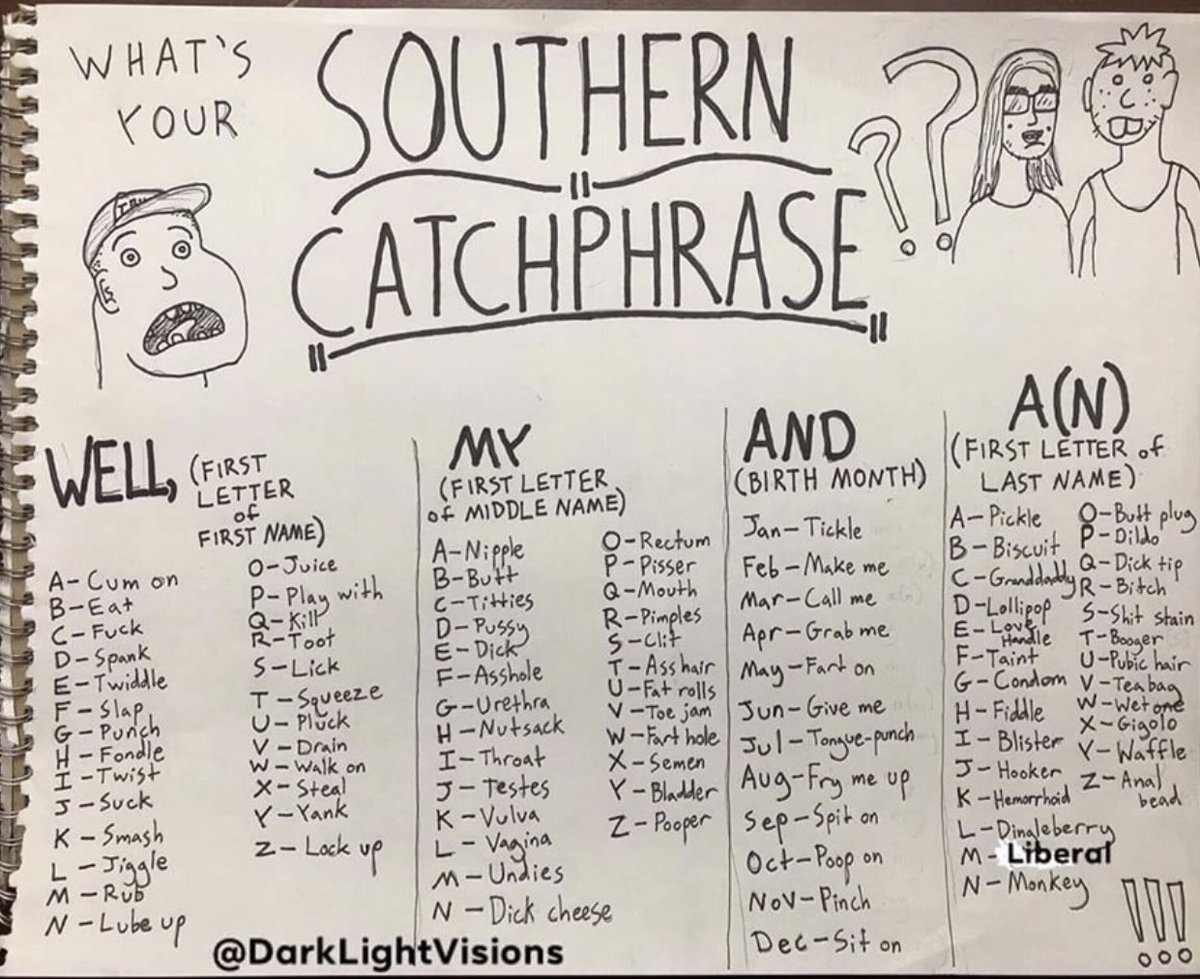 WHAT'S
YOUR
SOUTHERN
CATCHPHRASE
??
WELL, (FIRST
LETTER
of
FIRST NAME)
A-Cum on
B-Eat
C-Fuck
D-Spank
E-Twiddle
F-Slap
G-Punch
H-Fondle
I-Twist
J-Suck
K-Smash
L-Jiggle
M-Rub
N-Lube up
O-Juice
P-Play with
Q-Kill
R-Toot
S-Lick
T-Squeeze
U-Pluck
V-Drain
W-Walk on
X-Steal
Y-Yank
Z-Lock up
MY
(FIRST LETTER
of MIDDLE NAME)
A-Nipple
B-Butt
C-Titties
D-Pussy
E-Dick
F-Asshole
G-Urethra
H-Nutsack
I-Throat
J-Testes
K-Vulva
L-Vagina
M-Undies
N-Dick cheese
O-Rectum
P-Pisser
Q-Mouth
R-Pimples
S-Clit
T-Ass hair
U-Fat rolls
V-Toe jam
W-Fart hole
X-Semen
Y-Bladder
Z-Pooper
AND
(BIRTH MONTH)
Jan-Tickle
Feb-Make me
Mar-Call me
Apr-Grab me
May-Fart on
Jun-Give me
Jul-Tongue-punch
Aug-Fry me up
Sep-Spit on
Oct-Poop on
Nov-Pinch
Dec-Sit on
A(N)
(FIRST LETTER of
LAST NAME)
A-Pickle
B-Biscuit
C-Granddaddy
D-Lollipop
E-Love
Handle
F-Taint
G-Condom
H-Fiddle
I-Blister
J-Hooker
K-Hemorrhoid
L-Dingleberry
M-Liberal
N-Monkey
O-Butt plug
P-Dildo
Q-Dick tip
R-Bitch
S-Shit stain
T-Booger
U-Pubic hair
V-Teabag
W-Wet one
X-Gigolo
Y-Waffle
Z-Anal
bead
!!!
@DarkLightVisions